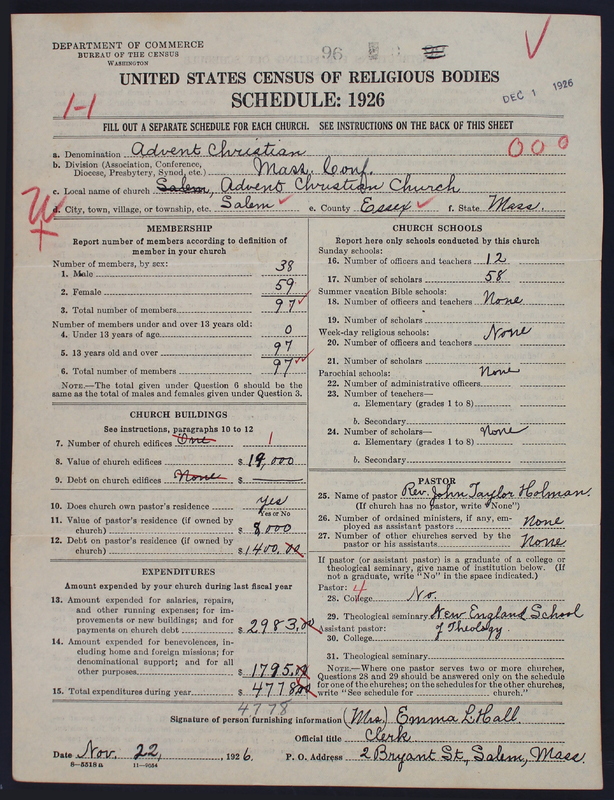 DEPARTMENT OF COMMERCE
BUREAU OF THE CENSUS
WASHINGTON
96
UNITED STATES CENSUS OF RELIGIOUS BODIES
SCHEDULE: 1926
DEC 1 1926
1-1
FILL OUT A SEPARATE SCHEDULE FOR EACH CHURCH. SEE INSTRUCTIONS ON THE BACK OF THIS SHEET
000
a. Denomination Advent Christian
b. Division (Association, Conference, Diocese, Presbytery, Synod, etc.) Mass. Conf.
c. Local name of church Salem, Advent Christian Church
d. City, town, village, or township, etc. Salem e. County Essex f. State Mass.
MEMBERSHIP
Report number of members according to definition of
member in your church
Number of members, by sex:
1. Male 38
2. Female 59
3. Total number of members 97
Number of members under and over 13 years old:
4. Under 13 years of age 0
5. 13 years old and over 97
6. Total number of members 97
NOTE.—The total given under Question 6 should be
same as the total of males and females given under Question 3.
CHURCH BUILDINGS
See instructions, paragraphs 10 to 12
7. Number of church edifices One 1
8. Value of church edifices $ 19,000
9. Debt on church edifices None $
10. Does church own pastor's residence yes
Yes or No
11. Value of pastor's residence (if owned by
church) $ 8000
12. Debt on pastor's residence (if owned by
church) $ 1400.00
EXPENDITURES
Amount expended by your church during last fiscal year
13. Amount expended for salaries, repairs,
and other running expenses; for im-
provements or new buildings; and for
payments on church debt $ 2983.00
14. Amount expended for benevolences, in-
cluding home and foreign missions; for
denominational support; and for all
other purposes $ 1795.00
15. Total expenditures during year $ 4778.00
4778
CHURCH SCHOOLS
Report here only schools conducted by this church
Sunday schools:
16. Number of officers and teachers 12
17. Number of scholars 58
Summer vacation Bible schools:
18. Number of officers and teachers None
19. Number of scholars
Week-day religious schools: None
20. Number of officers and teachers
21. Number of scholars
Parochial schools: None
22. Number of administrative officers
23. Number of teachers—
a. Elementary (grades 1 to 8)
b. Secondary
24. Number of scholars— None
a. Elementary (grades 1 to 8)
b. Secondary
PASTOR
25. Name of pastor Rev. John Taylor Holman.
(If church has no pastor, write "None")
26. Number of ordained ministers, if any, em-
ployed as assistant pastors None
27. Number of other churches served by the
pastor or his assistants None
If pastor (or assistant pastor) is a graduate of a college or
theological seminary, give name of institution below. (If
not a graduate, write "No" in the space indicated.)
Pastor: 4
28. College No.
29. Theological seminary New England School
Assistant pastor: of Theology.
30. College
31. Theological seminary
NOTE.—Where one pastor serves two or more churches,
Questions 28 and 29 should be answered only on the schedule
for one of the churches; on the schedules for the other churches,
write "See schedule for church."
Signature of person furnishing information (Mrs.) Emma L. Hall.
Official title Clerk
Date Nov. 22, 1926. P. O. Address 2 Bryant St., Salem, Mass.
8-5518 a 11-9034